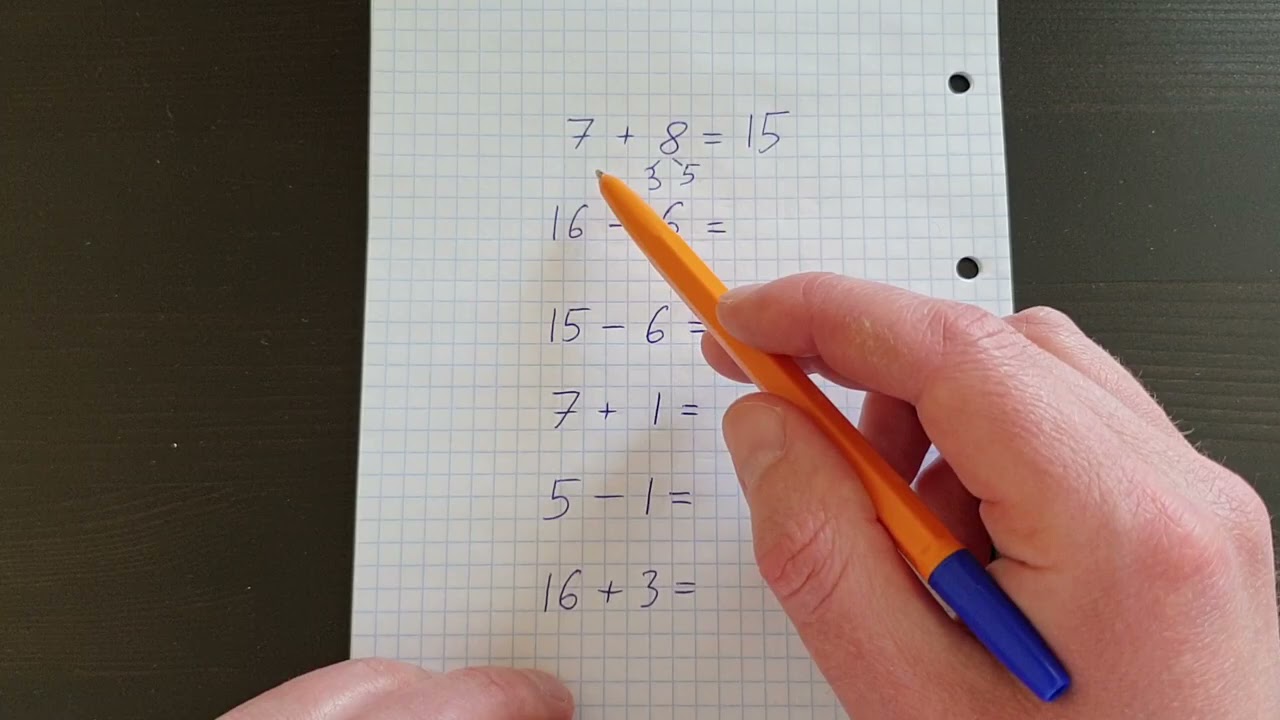 7 + 8 = 15
3 5
16 - 6 =
15 - 6 =
7 + 1 =
5 - 1 =
16 + 3 =